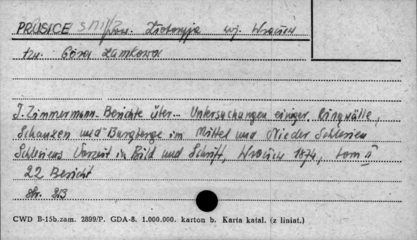 PROSICE pow. Złotoryja woj. Wrocław
tzw. Góra Zamkowa
J. Zimmermann. Berichte über... Untersuchungen einiger Ringwälle,
Schanzen und Burgberge im Mittel und Nieder Schlesien
Schlesiens Vorzeit in Bild und Schrift, Wrocław 1874, tom II
22 Bericht
Str. 213
CWD B-15b.zam. 2899/P. GDA-8. 1.000.000. karton b. Karta katal. (z liniat.)